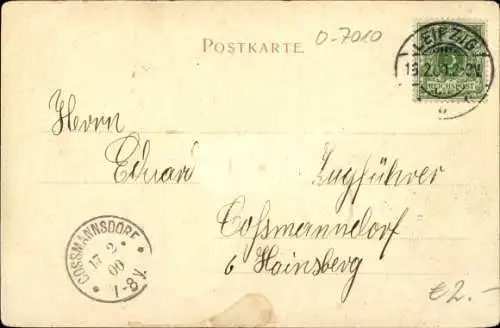 POSTKARTE.
O-7010
LEIPZIG
5
Herrn
Eduard Zugführer
Cossmanndorf
b Hainsberg
COSSMANNSDORF
17 2
00
* 1-8 V. *
€2.-